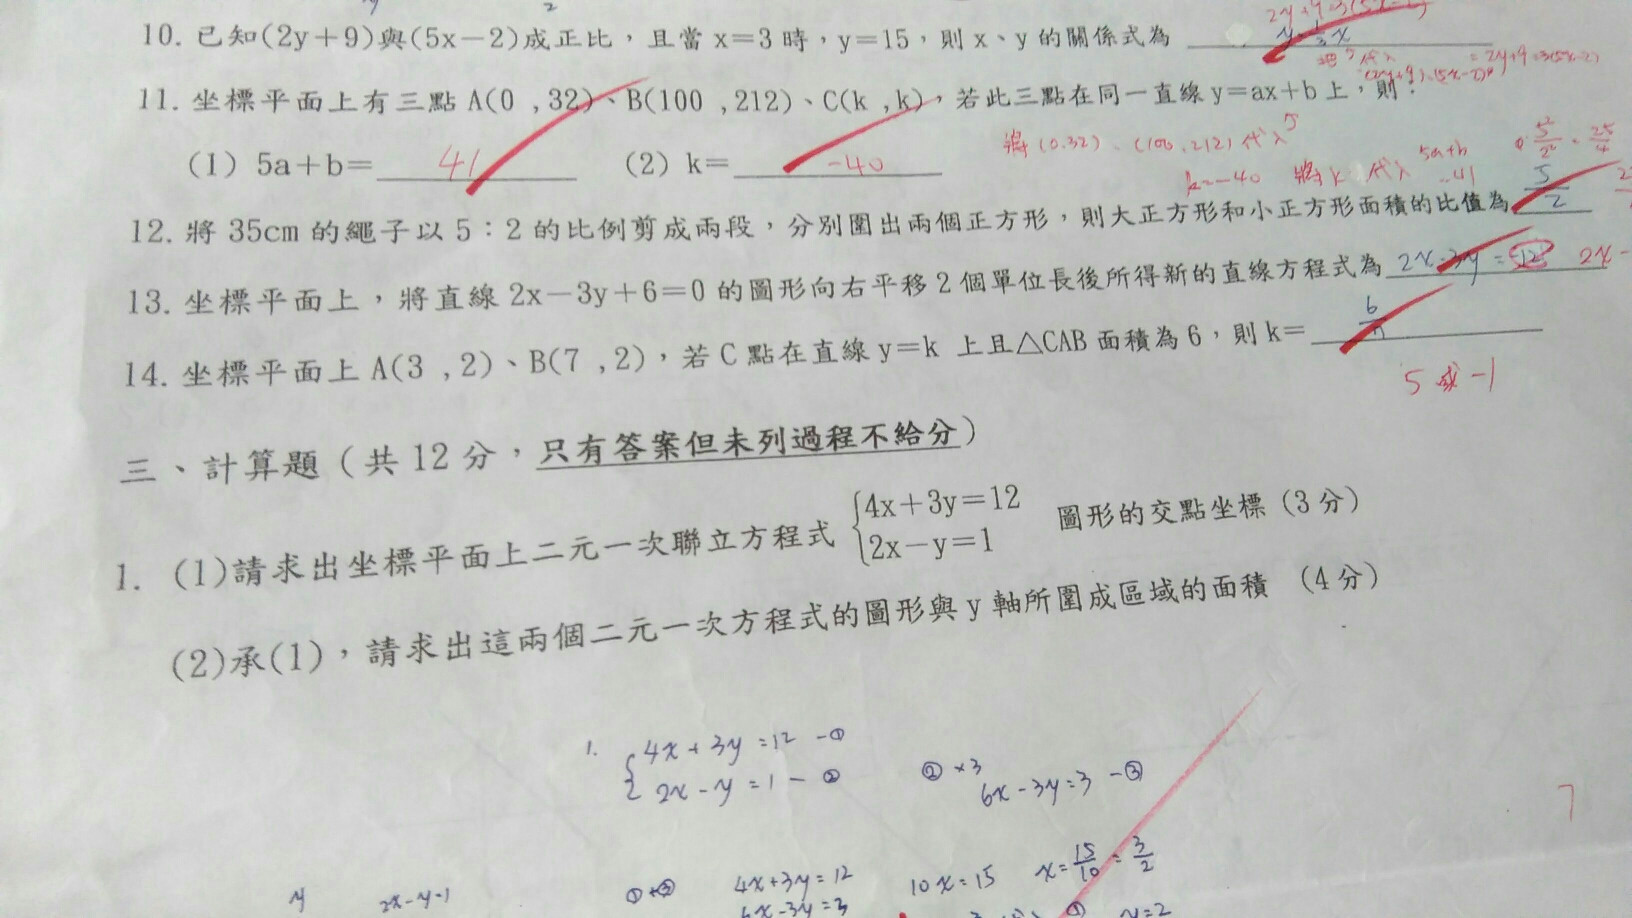 2y+9=3(5x-2)
10. 已知(2y+9)與(5x-2)成正比，且當 x=3 時，y=15，則 x、y 的關係式為
=2y+9=3(5x-2)
11. 坐標平面上有三點 A(0 ,32)、B(100 ,212)、C(k ,k)，若此三點在同一直線 y=ax+b 上，則：
將(0.32)、(100.212)代入
(1) 5a+b= 41 (2) k= -40
k=-40 將k代入 5a+b 41
5²/2² = 25/4
12. 將 35cm 的繩子以 5：2 的比例剪成兩段，分別圍出兩個正方形，則大正方形和小正方形面積的比值為 5/2
13. 坐標平面上，將直線 2x-3y+6=0 的圖形向右平移 2 個單位長後所得新的直線方程式為 2x-3y=12 2x-
14. 坐標平面上 A(3 ,2)、B(7 ,2)，若 C 點在直線 y=k 上且△CAB 面積為 6，則 k=
5 或 -1
三、計算題（共 12 分，只有答案但未列過程不給分）
1. (1)請求出坐標平面上二元一次聯立方程式 {4x+3y=12 2x-y=1 圖形的交點坐標（3 分）
(2)承(1)，請求出這兩個二元一次方程式的圖形與 y 軸所圍成區域的面積 （4 分）
1. {4x+3y=12 -①
2x-y=1 -②
②×3
6x-3y=3 -③
7
y 2x-y=1
①+③ 4x+3y=12
6x-3y=3
10x=15 x=15/10=3/2
① y=2